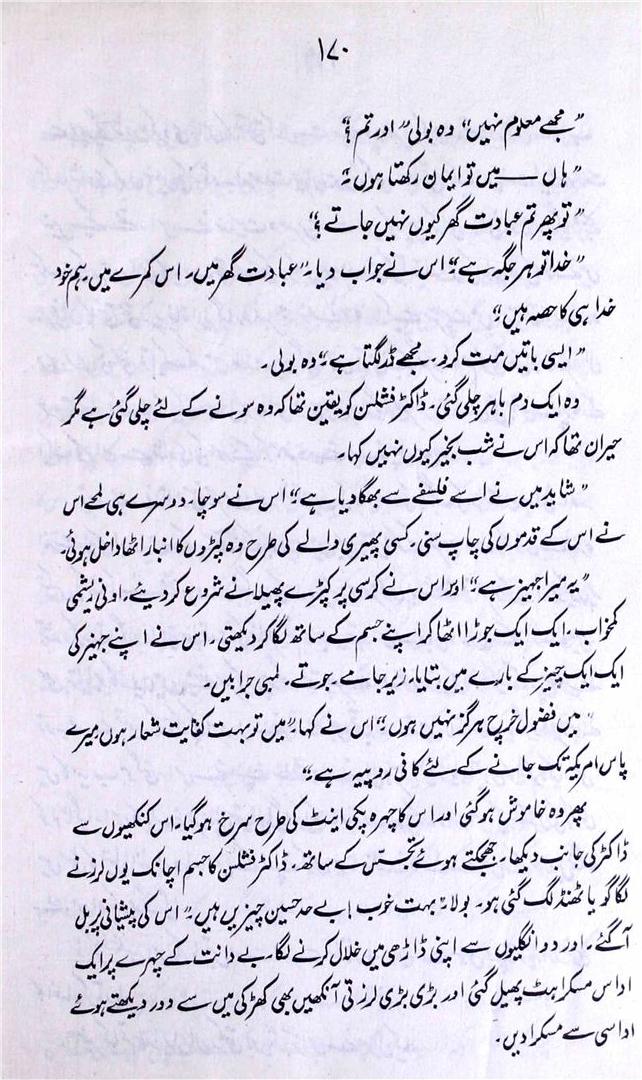 ۱۷۰
"مجھے معلوم نہیں" وہ بولی" اور تم؟"
"ہاں —— میں تو ایمان رکھتا ہوں"
"تو پھر تم عبادت گھر کیوں نہیں جاتے؟"
"خدا تو ہر جگہ ہے" اس نے جواب دیا" عبادت گھر میں۔ اس کمرے میں۔ ہم خود
خدا ہی کا حصہ ہیں"
"ایسی باتیں مت کرو۔ مجھے ڈر لگتا ہے" وہ بولی۔
وہ ایک دم باہر چلی گئی۔ ڈاکٹر فشلسن کو یقین تھا کہ وہ سونے کے لئے چلی گئی ہے مگر
حیران تھا کہ اس نے شب بخیر کیوں نہیں کہا۔
"شاید میں نے اسے فلسفے سے بھگا دیا ہے" اس نے سوچا۔ دوسرے ہی لمحے اس
نے اس کے قدموں کی چاپ سنی۔ کسی پھیری والے کی طرح وہ کپڑوں کا انبار اٹھا داخل ہوئی۔
"یہ میرا جہیز ہے" اور اس نے کرسی پر کپڑے پھیلانے شروع کر دیئے، اونی ریشمی
کمخواب، ایک ایک جوڑا اٹھا کر اپنے جسم کے ساتھ لگا کر دیکھتی۔ اس نے اپنے جہیز کی
ایک ایک چیز کے بارے میں بتایا، زیر جامے۔ جوتے۔ لمبی جرابیں۔
"میں فضول خرچ ہرگز نہیں ہوں" اس نے کہا" میں تو بہت کفایت شعار ہوں میرے
پاس امریکہ تک جانے کے لئے کافی روپیہ ہے"
پھر وہ خاموش ہو گئی اور اس کا چہرہ پکی اینٹ کی طرح سرخ ہو گیا۔ اس کنکھیوں سے
ڈاکٹر کی جانب دیکھا۔ جھجکتے ہوئے تجسّس کے ساتھ، ڈاکٹر فشلسن کا جسم اچانک یوں لرزنے
لگا گویا ٹھنڈ لگ گئی ہو۔ بولا" بہت خوب! بے حد حسین چیزیں ہیں" اس کی پیشانی پر بل
آ گئے۔ اور دو انگلیوں سے اپنی ڈاڑھی میں خلال کرنے لگا۔ بے دانت کے چہرے پر ایک
اداس مسکراہٹ پھیل گئی اور بڑی بڑی لرزتی آنکھیں بھی کھڑکی میں سے دور دیکھتے ہوئے
اداسی سے مسکرا دیں۔